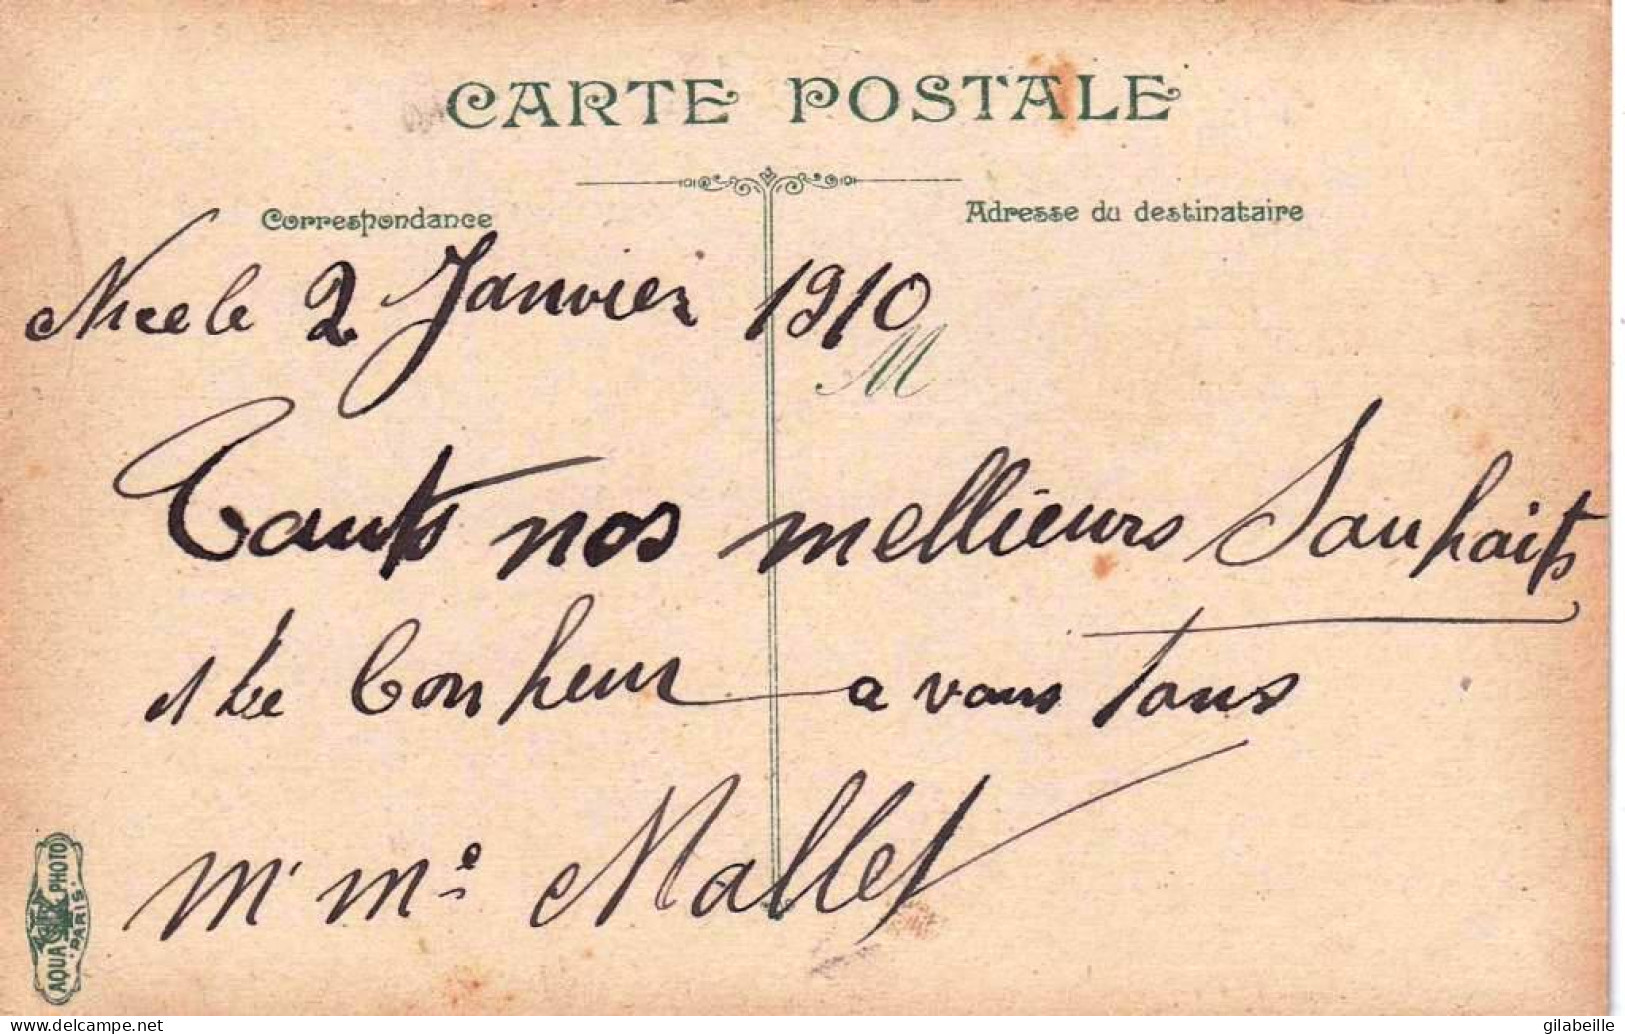 CARTE POSTALE
Correspondance
Adresse du destinataire
Nice le 2 Janvier 1910
M
Tauts nos mellieurs Sauhaits
de bonheur a vous tous
Mr Me Mallet
AQUA PHOTO
PARIS
gilabeille
delcampe.net